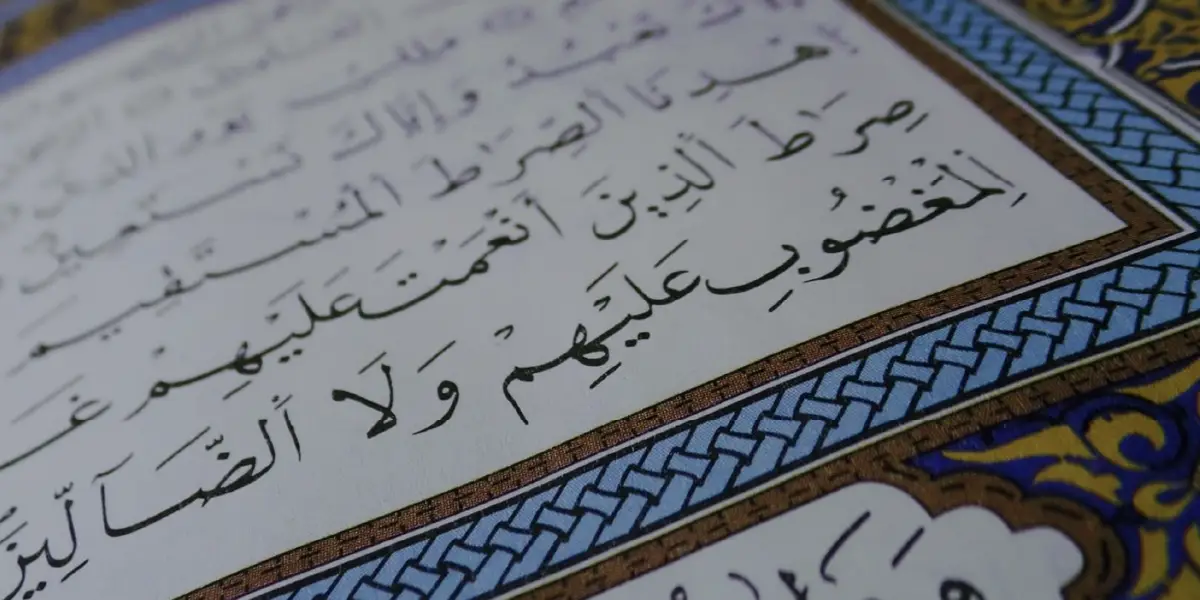 ملك يوم الدين
نعبد وإياك نستعين
هدنا الصرٰط المستقيم
صِرَٰطَ ٱلَّذِينَ أَنْعَمْتَ عَلَيْهِمْ غَـ
ٱلْمَغْضُوبِ عَلَيْهِمْ وَلَا ٱلضَّآلِّينَ